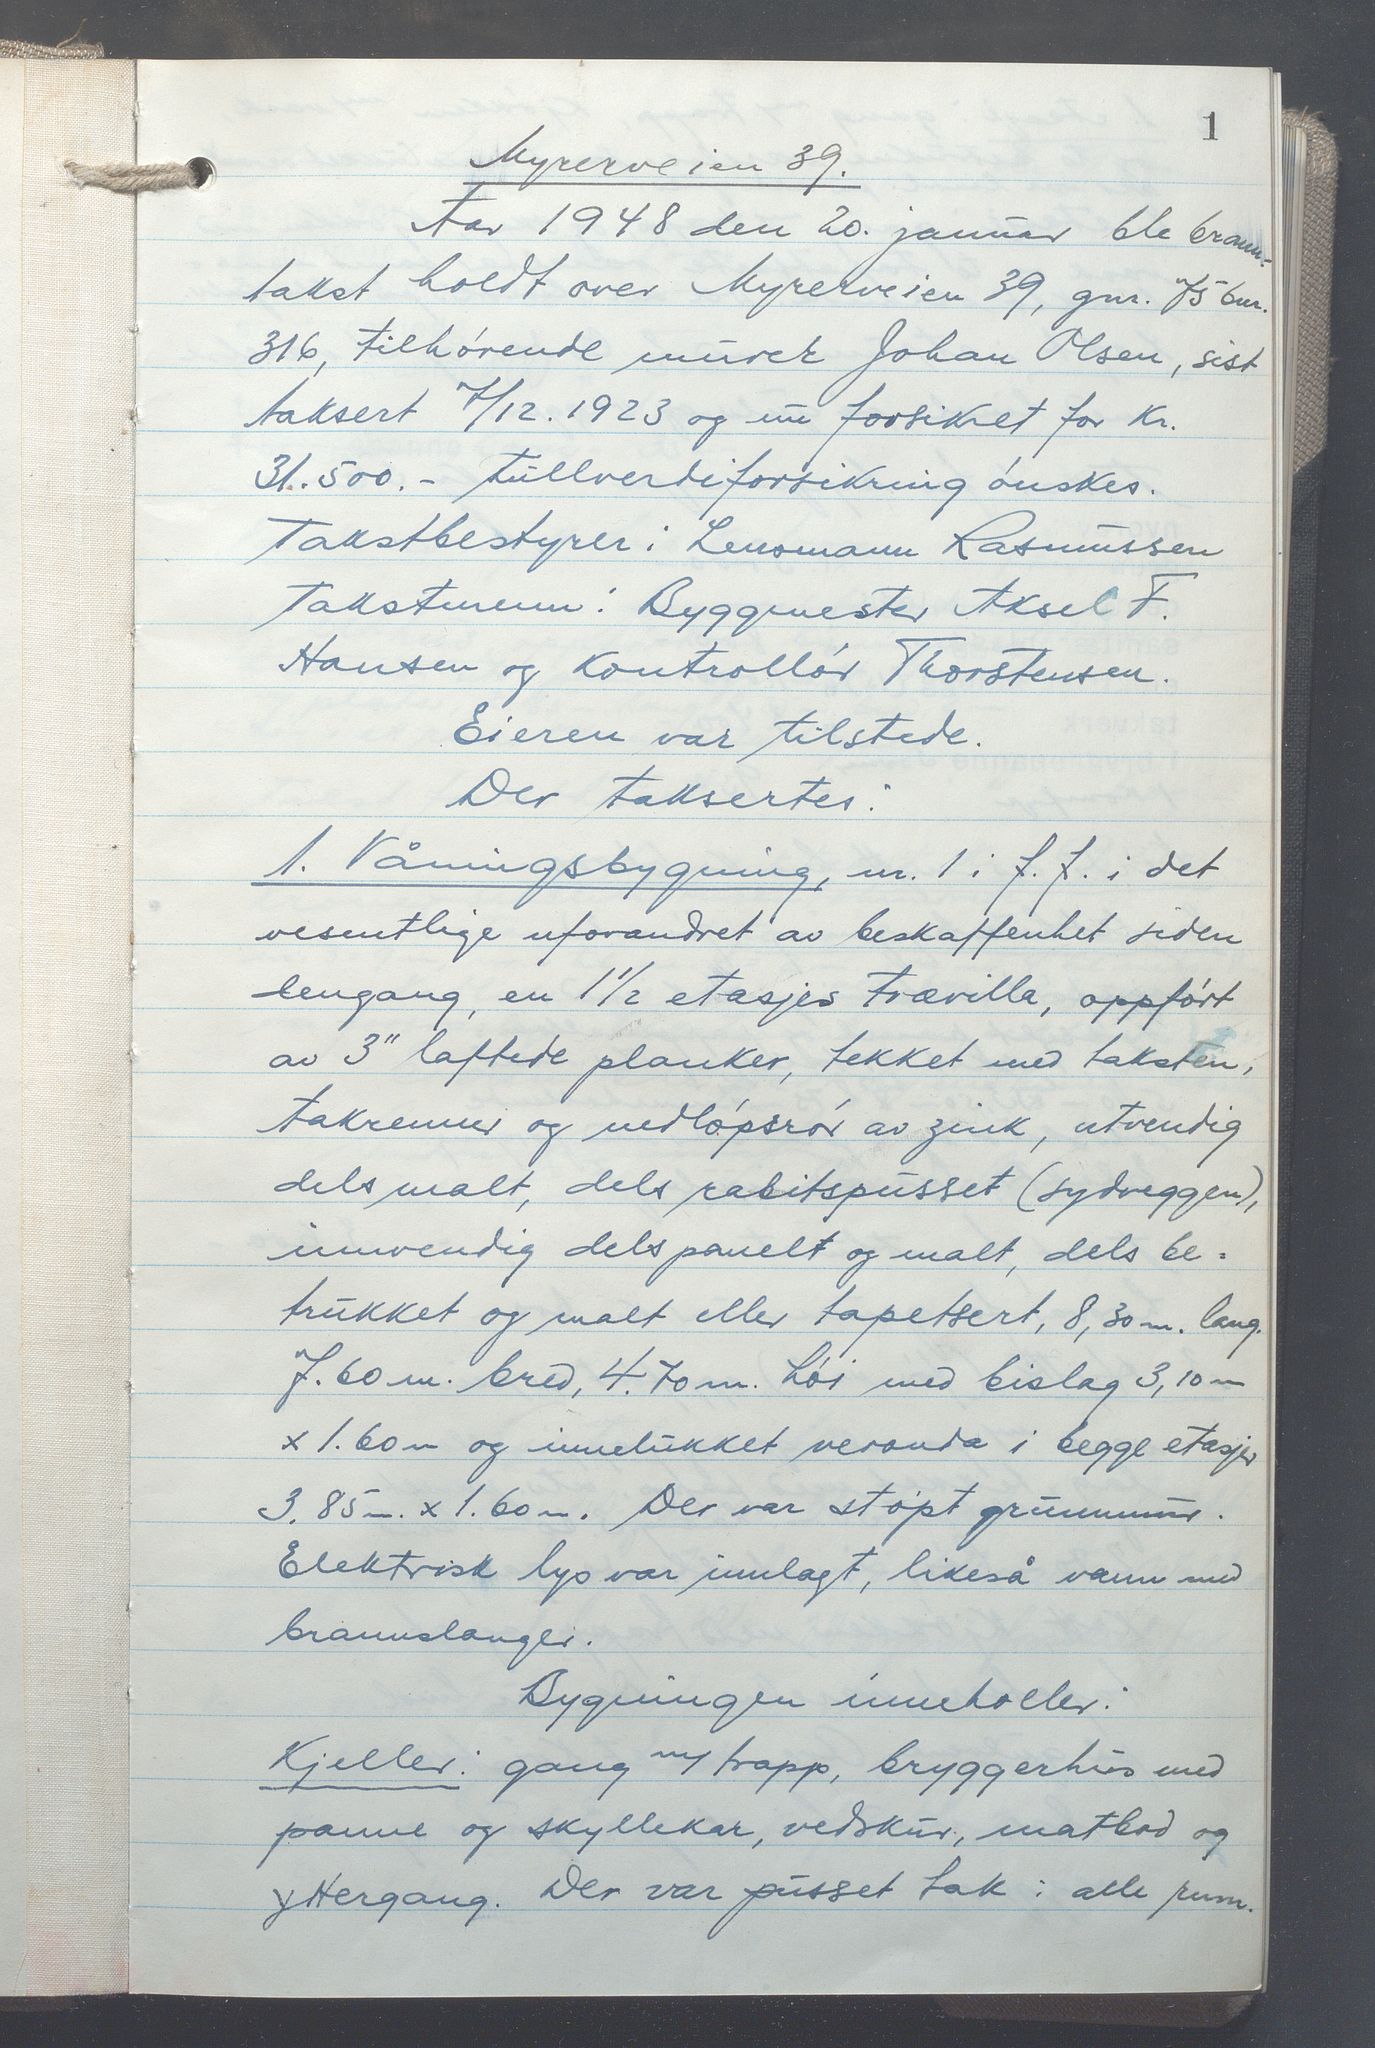 1
Myrerveien 39.
Aar 1948 den 20. januar ble brann-
takst holdt over Myrerveien 39, gnr. 75 bnr.
316, tilhørende murer Johan Olsen, sist
taksert 7/12. 1923 og nu forsikret for Kr.
31.500.- Fullverdiforsikring ønskes.
Takstbestyrer: Lensmann Rasmussen
Takstmenn: Byggmester Aksel F.
Hansen og kontrollør Thorstensen.
Eieren var tilstede.
Der taksertes:
1. Våningsbygning, nr. 1 i f.f. i det
vesentlige uforandret av beskaffenhet siden
dengang, en 1 1/2 etasjes trævilla, oppført
av 3" laftede planker, tekket med taksten,
takrenner og nedløpsrør av zink, utvendig
dels malt, dels rabitspusset (sydveggen),
innvendig dels panelt og malt, dels be-
trukket og malt eller tapetsert, 8,30 m. lang.
7.60 m. bred, 4.70 m. høi med bislag 3,10 m
x 1.60 m og innelukket veranda i begge etasjer
3.85 m. x 1.60 m. Der var støpt grunnmur.
Elektrisk lys var innlagt, likeså vann med
brannslanger.
Bygningen inneholder:
Kjeller: gang m/ trapp, bryggerhus med
panne og skyllekar, vedskur, matbod og
yttergang. Der var pusset tak i alle rum.